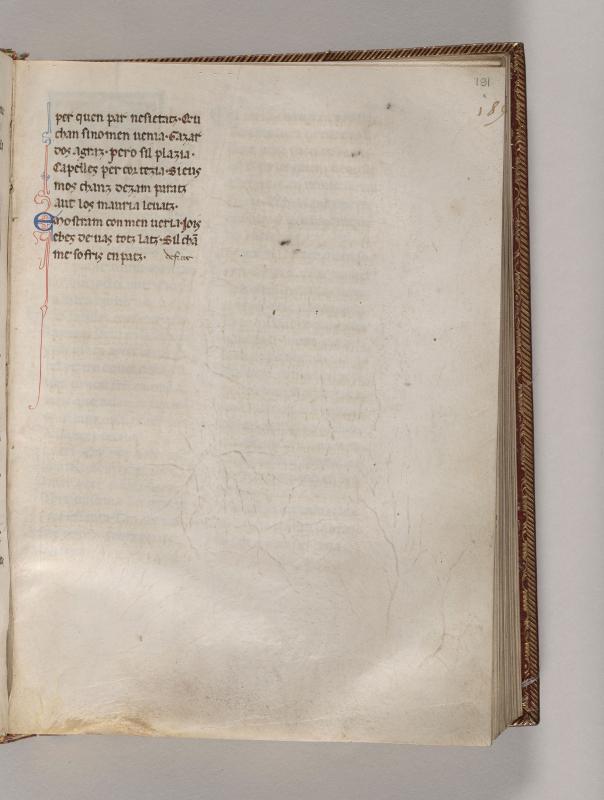 191
189
per quen par nesietatz. Eru
chan sinomen uenia. Gazar
dos agratz. pero sil plazia.
Capelles per cortezia. Sieus
mos chanz dezam paratz
aut los mauria leuatz.
Mostram con men ueria. Iois
ebez de uas totz latz. Sil chã
me sofris en patz. deficit